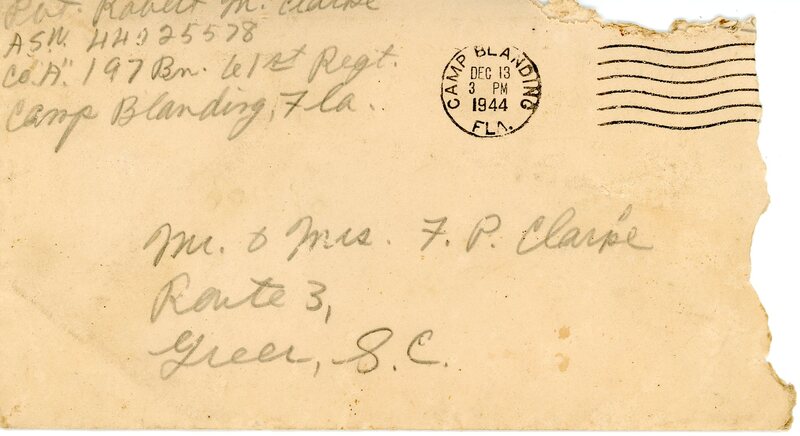 Pvt. Robert M. Clarke
ASN. 44025578
Co."A" 197 Bn. 61st Regt.
Camp Blanding, Fla.
CAMP BLANDING
DEC 13
3 PM
1944
FLA.
Mr. & Mrs. F. P. Clarke
Route 3,
Greer, S.C.